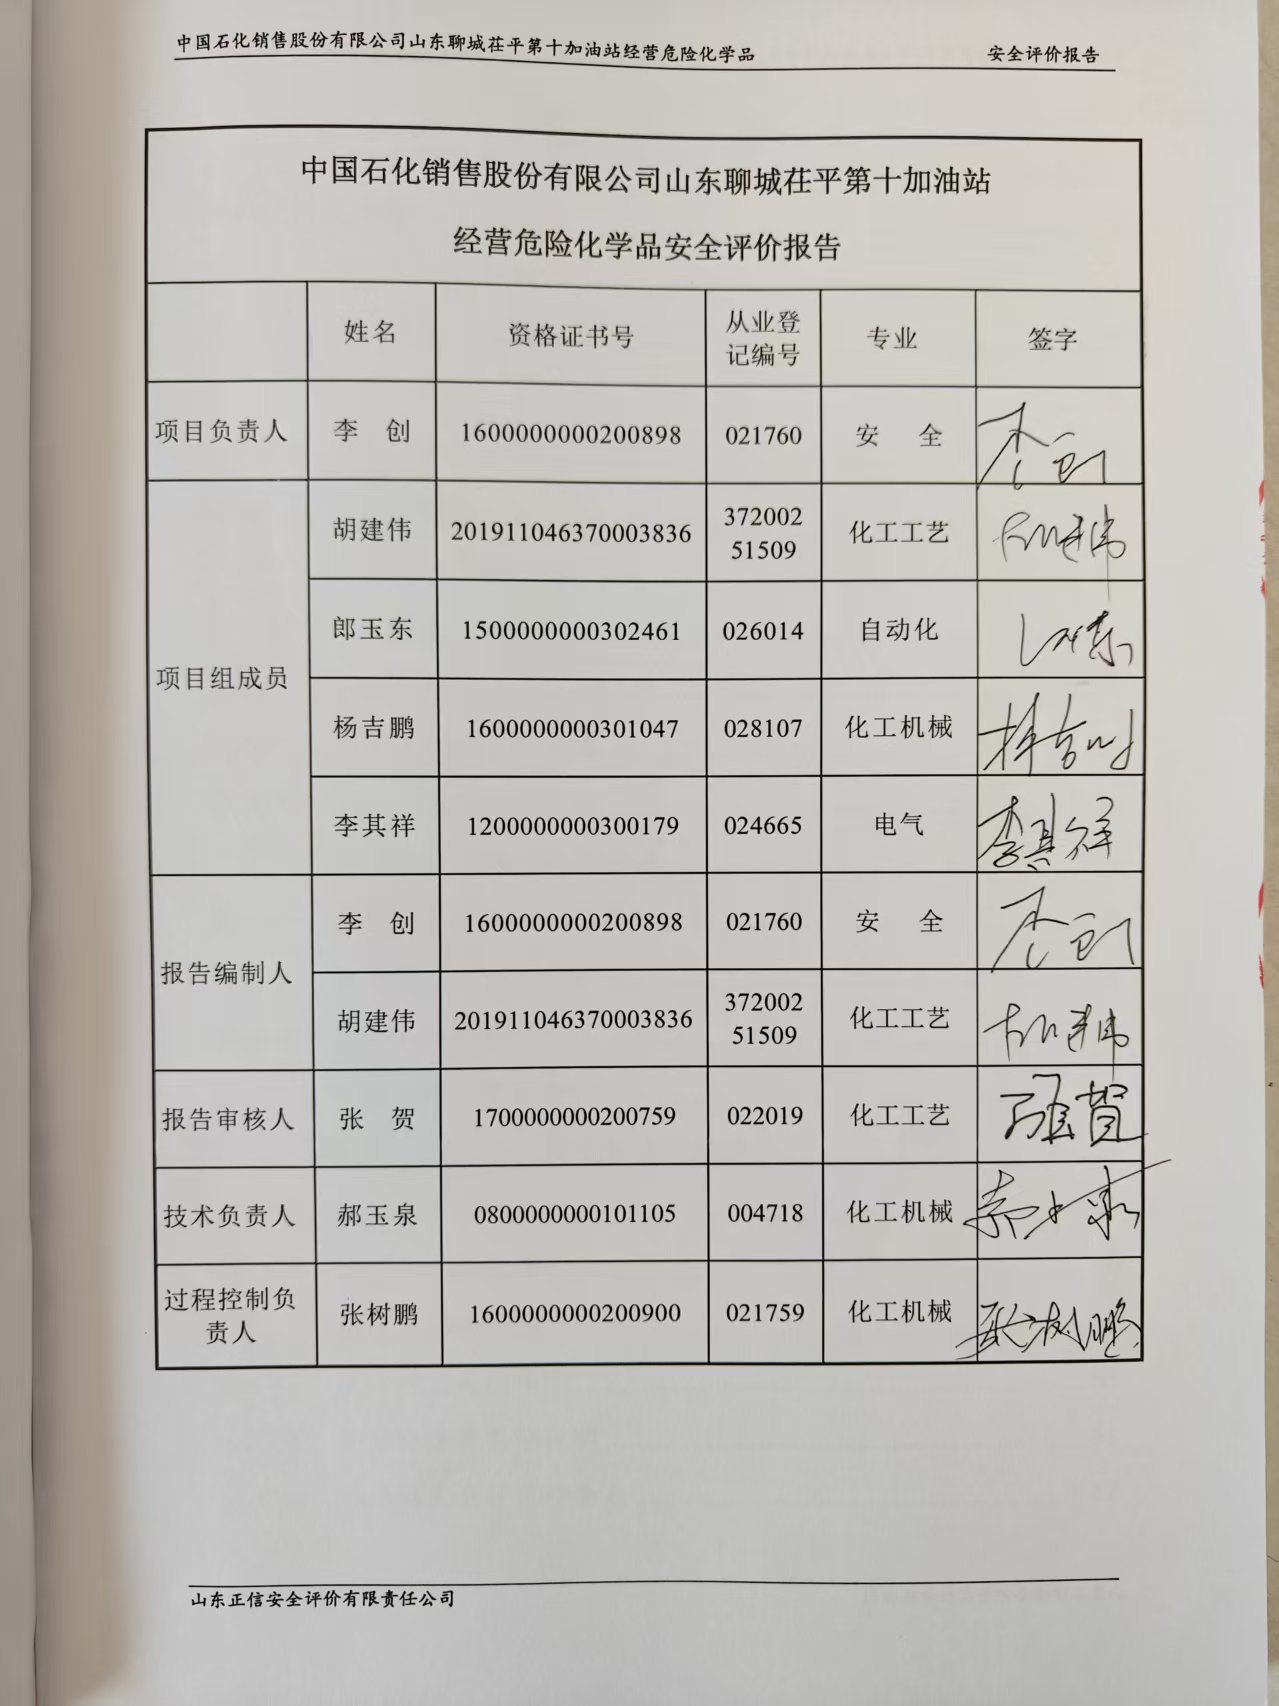 中国石化销售股份有限公司山东聊城茌平第十加油站经营危险化学品 安全评价报告
中国石化销售股份有限公司山东聊城茌平第十加油站
经营危险化学品安全评价报告
姓名 资格证书号 从业登记编号 专业 签字
项目负责人 李 创 1600000000200898 021760 安 全 李创
项目组成员 胡建伟 201911046370003836 37200251509 化工工艺 胡建伟
郎玉东 1500000000302461 026014 自动化
杨吉鹏 1600000000301047 028107 化工机械 杨吉鹏
李其祥 1200000000300179 024665 电气 李其祥
报告编制人 李 创 1600000000200898 021760 安 全 李创
胡建伟 201911046370003836 37200251509 化工工艺 胡建伟
报告审核人 张 贺 1700000000200759 022019 化工工艺 张贺
技术负责人 郝玉泉 0800000000101105 004718 化工机械 郝玉泉
过程控制负责人 张树鹏 1600000000200900 021759 化工机械 张树鹏
山东正信安全评价有限责任公司